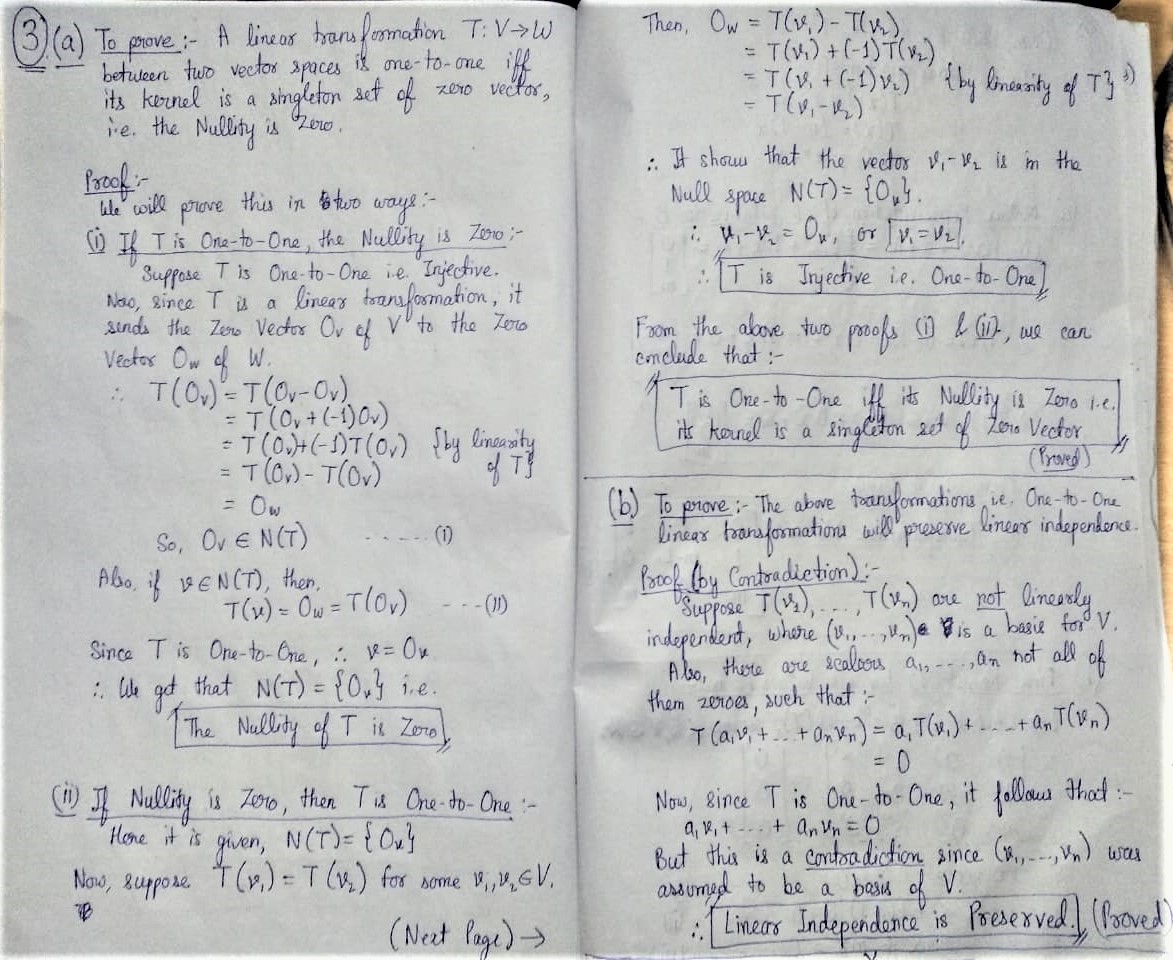 (3) (a) To prove :- A linear transformation T: V→W
between two vector spaces is one-to-one iff
its kernel is a singleton set of zero vector,
i.e. the Nullity is Zero.
Proof :-
We will prove this in two ways :-
(i) If T is One-to-One, the Nullity is Zero :-
Suppose T is One-to-One i.e. Injective.
Now, since T is a linear transformation, it
sends the Zero Vector Oᵥ of V to the Zero
Vector O_w of W.
∴ T(Oᵥ) = T(Oᵥ-Oᵥ)
= T(Oᵥ+(-1)Oᵥ)
= T(Oᵥ)+(-1)T(Oᵥ) {by linearity
of T}
= T(Oᵥ)-T(Oᵥ)
= O_w
So, Oᵥ ∈ N(T) ------(I)
Also, if v ∈ N(T), then,
T(v) = O_w = T(Oᵥ) ---(II)
Since T is One-to-One, ∴ v = Oᵥ
∴ We get that N(T) = {Oᵥ} i.e.
The Nullity of T is Zero
(ii) If Nullity is Zero, then T is One-to-One :-
Here it is given, N(T) = {Oᵥ}
Now, suppose T(v₁) = T(v₂) for some v₁,v₂∈V.
(Next Page) →
Then, O_w = T(v₁) - T(v₂)
= T(v₁) + (-1)T(v₂)
= T(v₁ + (-1)v₂) {by linearity of T}
= T(v₁-v₂)
∴ It shows that the vector v₁-v₂ is in the
Null space N(T) = {Oᵥ}.
∴ v₁-v₂ = Oᵥ, or v₁=v₂.
∴ T is Injective i.e. One-to-One
From the above two proofs (i) & (ii), we can
conclude that :-
T is One-to-One iff its Nullity is Zero i.e.
its kernel is a singleton set of Zero Vector
(Proved)
(b) To prove :- The above transformations i.e. One-to-One
linear transformations will preserve linear independence.
Proof (by Contradiction) :-
Suppose T(v₁), ...., T(vₙ) are not linearly
independent, where (v₁,...,vₙ) is a basis for V.
Also, there are scalars a₁,----,aₙ not all of
them zeroes, such that :-
T(a₁v₁+...+aₙvₙ) = a₁T(v₁)+----+aₙT(vₙ)
= 0
Now, since T is One-to-One, it follows that :-
a₁v₁+----+aₙvₙ = 0
But this is a contradiction since (v₁,---,vₙ) was
assumed to be a basis of V.
∴ Linear Independence is Preserved. (Proved)